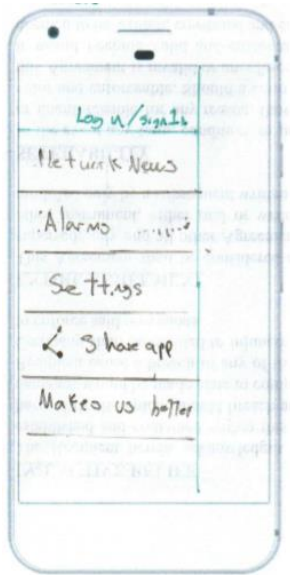 Log n/signIn
Netwrk News
Alarms
Settings
Share app
Makes us better